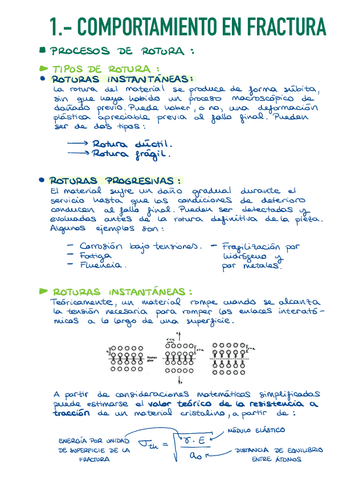 1.- COMPORTAMIENTO EN FRACTURA
PROCESOS DE ROTURA :
TIPOS DE ROTURA :
ROTURAS INSTANTÁNEAS:
La rotura del material se produce de forma súbita,
sin que haya habido un proceso macroscópico de
dañado previo. Puede haber, o no, una deformación
plástica apreciable previa al fallo final. Pueden
ser de dos tipos:
→ Rotura dúctil.
→ Rotura frágil.
ROTURAS PROGRESIVAS:
El material sufre un daño gradual durante el
servicio hasta que las condiciones de deterioro
conducen al fallo final. Pueden ser detectadas y
evaluadas antes de la rotura definitiva de la pieza.
Algunos ejemplos son:
- Corrosión bajo tensiones. - Fragilización por
- Fatiga hidrógeno y
- Fluencia. por metales.
ROTURAS INSTANTÁNEAS:
Teóricamente, un material rompe cuando se alcanza
la tensión necesaria para romper los enlaces interató-
micos a lo largo de una superficie.
A partir de consideraciones matemáticas simplificadas
puede estimarse el valor teórico de la resistencia a
tracción de un material cristalino, a partir de :
MÓDULO ELÁSTICO
ENERGÍA POR UNIDAD
DE SUPERFICIE DE LA
FRACTURA
σth = √(γ · E / a₀)
DISTANCIA DE EQUILIBRIO
ENTRE ÁTOMOS